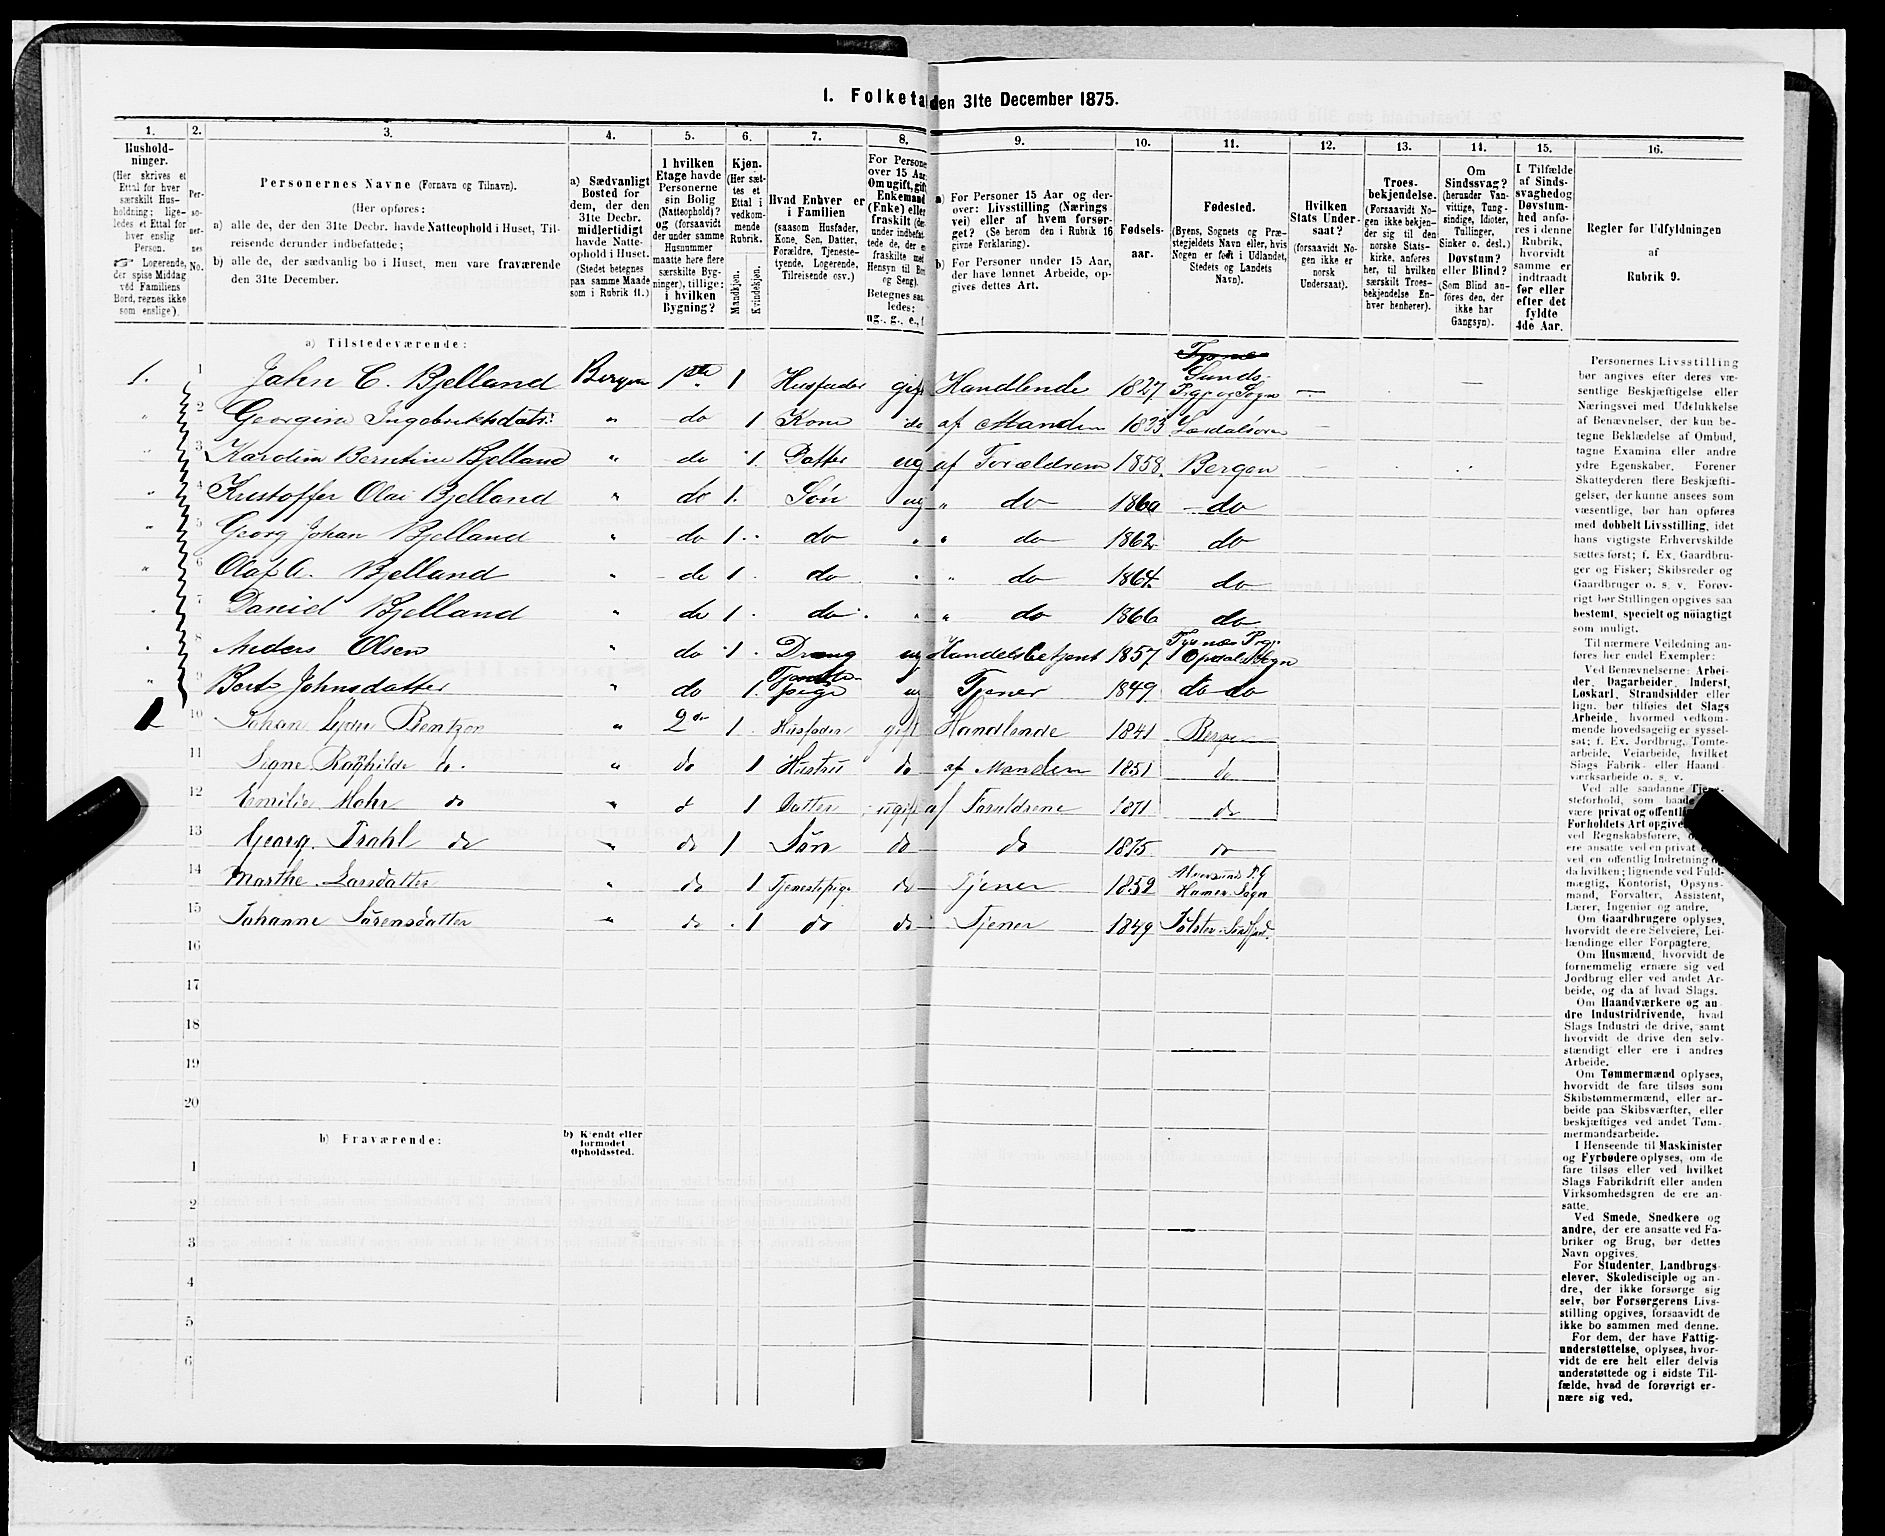 1. Folketa den 31te December 1875.
1. 2. 3. 4. 5. 6. 7. 8. 9. 10. 11. 12. 13. 14. 15. 16.
Hushold-
ninger.
(Her skrives et
Ettal for hver
særskilt Hus-
holdning; lige-
ledes et Ettal for
hver enslig
Person.
☞ Logerende,
der spise Middag
ved Familiens
Bord, regnes ikke
som enslige).
Per-
so-
ner-
nes
No.
Personernes Navne (Fornavn og Tilnavn).
(Her opføres:
a) alle de, der den 31te Decbr. havde Natteophold i Huset, Til-
reisende derunder indbefattede;
b) alle de, der sædvanlig bo i Huset, men vare fraværende
den 31te December.
a) Sædvanligt
Bosted for
dem, der den
31te Decbr.
midlertidigt
havde Natte-
ophold i Huset.
(Stedet betegnes
paa samme Maade
som i Rubrik 11.)
I hvilken
Etage havde
Personerne
sin Bolig
(Natteophold)?
og (forsaavidt
der under samme
Husnummer
maatte høre flere
særskilte Byg-
ninger), tillige:
i hvilken
Bygning?
Kjøn.
(Her sæt-
tes et
Ettal i
vedkom-
mende
Rubrik.
Mandkjøn.
Kvindekjøn.
Hvad Enhver er
i Familien
(saasom Husfader,
Kone, Søn, Datter,
Forældre, Tjeneste-
tyende, Logerende,
Tilreisende osv.)
For Persone
over 15 Aar
Om ugift, gift
Enkemand
(Enke) eller
fraskilt (de
under indbefat-
tede de, der e
fraskilte med
Hensyn til Bo
og Seng).
Betegnes saa
ledes:
ug., g., e., f
a) For Personer 15 Aar og der-
over: Livsstilling (Nærings
vei) eller af hvem forsør-
get? (Se herom den i Rubrik 16
givne Forklaring).
b) For Personer under 15 Aar,
der have lønnet Arbeide, op-
gives dettes Art.
Fødsels-
aar.
Fødested.
(Byens, Sognets og Præ-
stegjeldets Navn eller, hvis
Nogen er født i Udlandet,
Stedets og Landets
Navn).
Hvilken
Stats Under-
saat?
(forsaavidt No-
gen ikke er
norsk
Undersaat).
Troes-
bekjendelse.
(Forsaavidt No-
gen ikke bekjen-
der sig til den
norske Stats-
kirke, anføres
her, til hvilken
særskilt Troes-
bekjendelse En-
hver henhører).
Om
Sindssvag?
(herunder Van-
vittige, Tung-
sindige, Idioter,
Tullinger,
Sinker o. desl.)
Døvstum?
eller Blind?
(Som Blind an-
føres den, der
ikke har
Gangsyn).
I Tilfælde
af Sinds-
svaghed og
Døvstum-
hed anfø-
res i denne
Rubrik,
hvorvidt
samme er
indtraadt
før eller
efter det
fyldte
4de Aar.
Regler for Udfyldningen
af
Rubrik 9.
a) Tilstedeværende:
1. 1 John C. Bjelland Bergen 1ste 1 Husfader gift Handlende 1827 Sunds Pgj og Sogn
2 Georgine Ingebrikksdatr: " do 1 Kone do af Manden 1833 Lærdalsøren
3 Karoline Berntine Bjelland " do 1 Datter ug af Forældrene 1858 Bergen
4 Kristoffer Olai Bjelland " do 1 Søn ug " do 1860 do
5 Georg Johan Bjelland " do 1 do " " do 1862 do
6 Olaf A. Bjelland " do 1 do " " do 1864 do
7 Daniel Bjelland " do 1 do " " do 1866 do
8 Anders Olsen " do 1 Dreng ug Handelsbetjent 1857 Tysnæs Pgj. Opdal Sogn
9 Berte Johnsdatter " do 1 Tjeneste-pige ug Tjener 1849 do do
10 Johan Bentzon " 2de 1 Husfader gift Handlende 1841 Bergen
11 Signe Raghilde do. " do 1 Hustru do af Manden 1851 do
12 Emilie Mohr do " d 1 Datter ugift af Foreldrene 1871 do
13 Georg. Prahl do " do 1 Søn do do 1875 do
14 Marthe Larsdatter " do 1 Tjenestepige do Tjener 1859 Alversund P.G Hamer Sogn
15 Johanne Sørensdatter " do 1 do do Tjener 1849 Jølster Søndfjord.
16
17
18
19
20
b) Fraværende:
b) Kjendt eller
formodet
Opholdssted.
1
2
3
4
5
6
Personernes Livsstilling
bør angives efter deres væ-
sentlige Beskjæftigelse eller
Næringsvei med Udelukkelse
af Benævnelser, der kun be-
tegne Beklædelse af Ombud,
tagne Examina eller andre
ydre Egenskaber. Forener
Skatteyderen flere Beskjæfti-
gelser, der kunne ansees som
væsentlige, bør han opføres
med dobbelt Livsstilling, idet
hans vigtigste Erhvervskilde
sættes først; f. Ex. Gaardbru-
ger og Fisker; Skibsreder og
Gaardbruger o. s. v. Forøv-
rigt bør Stillingen opgives saa
bestemt, specielt og nøiagtigt
som muligt.
Til nærmere Veiledning an-
føres her endel Exempler:
Ved Benævnelserne: Arbei-
der, Dagarbeider, Inderst,
Løskarl, Strandsidder eller
lign. bør tilføies det Slags
Arbeide, hvormed vedkom-
mende hovedsagelig er syssel-
sat; f. Ex. Jordbrug, Tomte-
arbeide, Veiarbeide, hvilket
Slags Fabrik- eller Haand
værksarbeide o. s. v.
Ved alle saadanne Tje
steforhold, som baade
være privat og offentli
Forholdets Art opgive
ved Regnskabsførere,
ere ansatte ved en privat
ved en offentlig Indretning o
da hvilken; lignende ved Fuld-
mægtig, Kontorist, Opsyns-
mand, Forvalter, Assistent,
Lærer, Ingeniør og andre.
Om Gaardbrugere oplyses,
hvorvidt de ere Selveiere, Lei-
lændinge eller Forpagtere.
Om Husmænd, hvorvidt de
fornemmelig ernære sig ved
Jordbrug eller ved andet Ar-
beide, og da af hvad Slags.
Om Haandværkere og an-
dre Industridrivende, hvad
Slags Industri de drive, samt
hvorvidt de drive den selv-
stændigt eller ere i andres
Arbeide.
Om Tømmermænd oplyses,
hvorvidt de fare tilsøs som
Skibstømmermænd, eller ar-
beide paa Skibsværfter, eller
beskjæftiges ved andet Tøm-
mermandsarbeide.
I Henseende til Maskinister
og Fyrbødere oplyses, om de
fare tilsøs eller ved hvilket
Slags Fabrikdrift eller anden
Virksomhedsgren de ere an-
satte.
Ved Smede, Snedkere og
andre, der ere ansatte ved Fa-
briker og Brug, bør dettes
Navn opgives.
For Studenter, Landbrugs-
elever, Skoledisciple og an-
dre, der ikke forsørge sig
selv, bør Forsørgerens Livs-
stilling opgives, forsaavidt de
ikke bo sammen med denne.
For dem, der have Fattig-
understøttelse, oplyses, hvor-
vidt de ere helt eller delvis
understøttede og i sidste Til-
fælde, hvad de forøvrigt er-
nære sig ved.